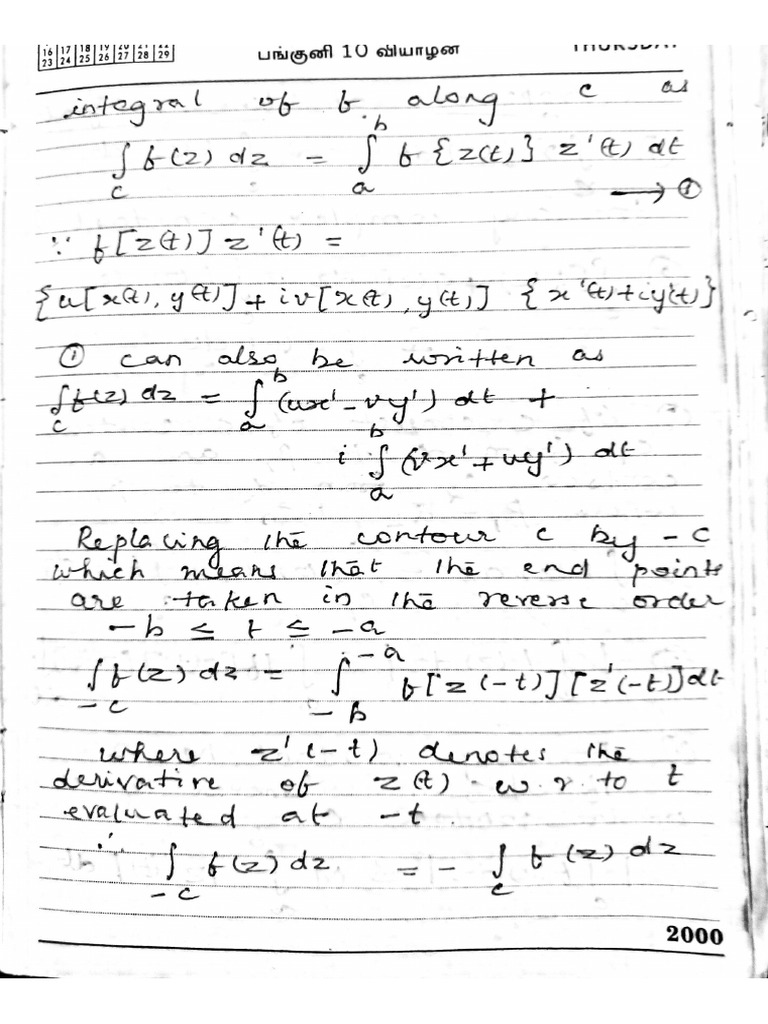 16 17 18 19 20 21 22
23 24 25 26 27 28 29
பங்குனி 10 வியாழன
THURSDAY
integral of f along c as
∫_c f(z) dz = ∫_a^b f{z(t)} z'(t) dt
→ ①
∵ f[z(t)] z'(t) =
{u[x(t), y(t)] + iv[x(t), y(t)] {x'(t)+iy'(t)}
① can also be written as
∫_c f(z) dz = ∫_a^b (ux' - vy') dt +
i ∫_a^b (vx' + uy') dt
Replacing the contour c by - c
which means that the end points
are taken in the reverse order
-b ≤ t ≤ -a
∫_-c f(z) dz = ∫_-b^-a f[z(-t)] [z'(-t)] dt
where z'(-t) denotes the
derivative of z(t) w.r.to t
evaluated at -t.
∴ ∫_-c f(z) dz = - ∫_c f(z) dz
2000